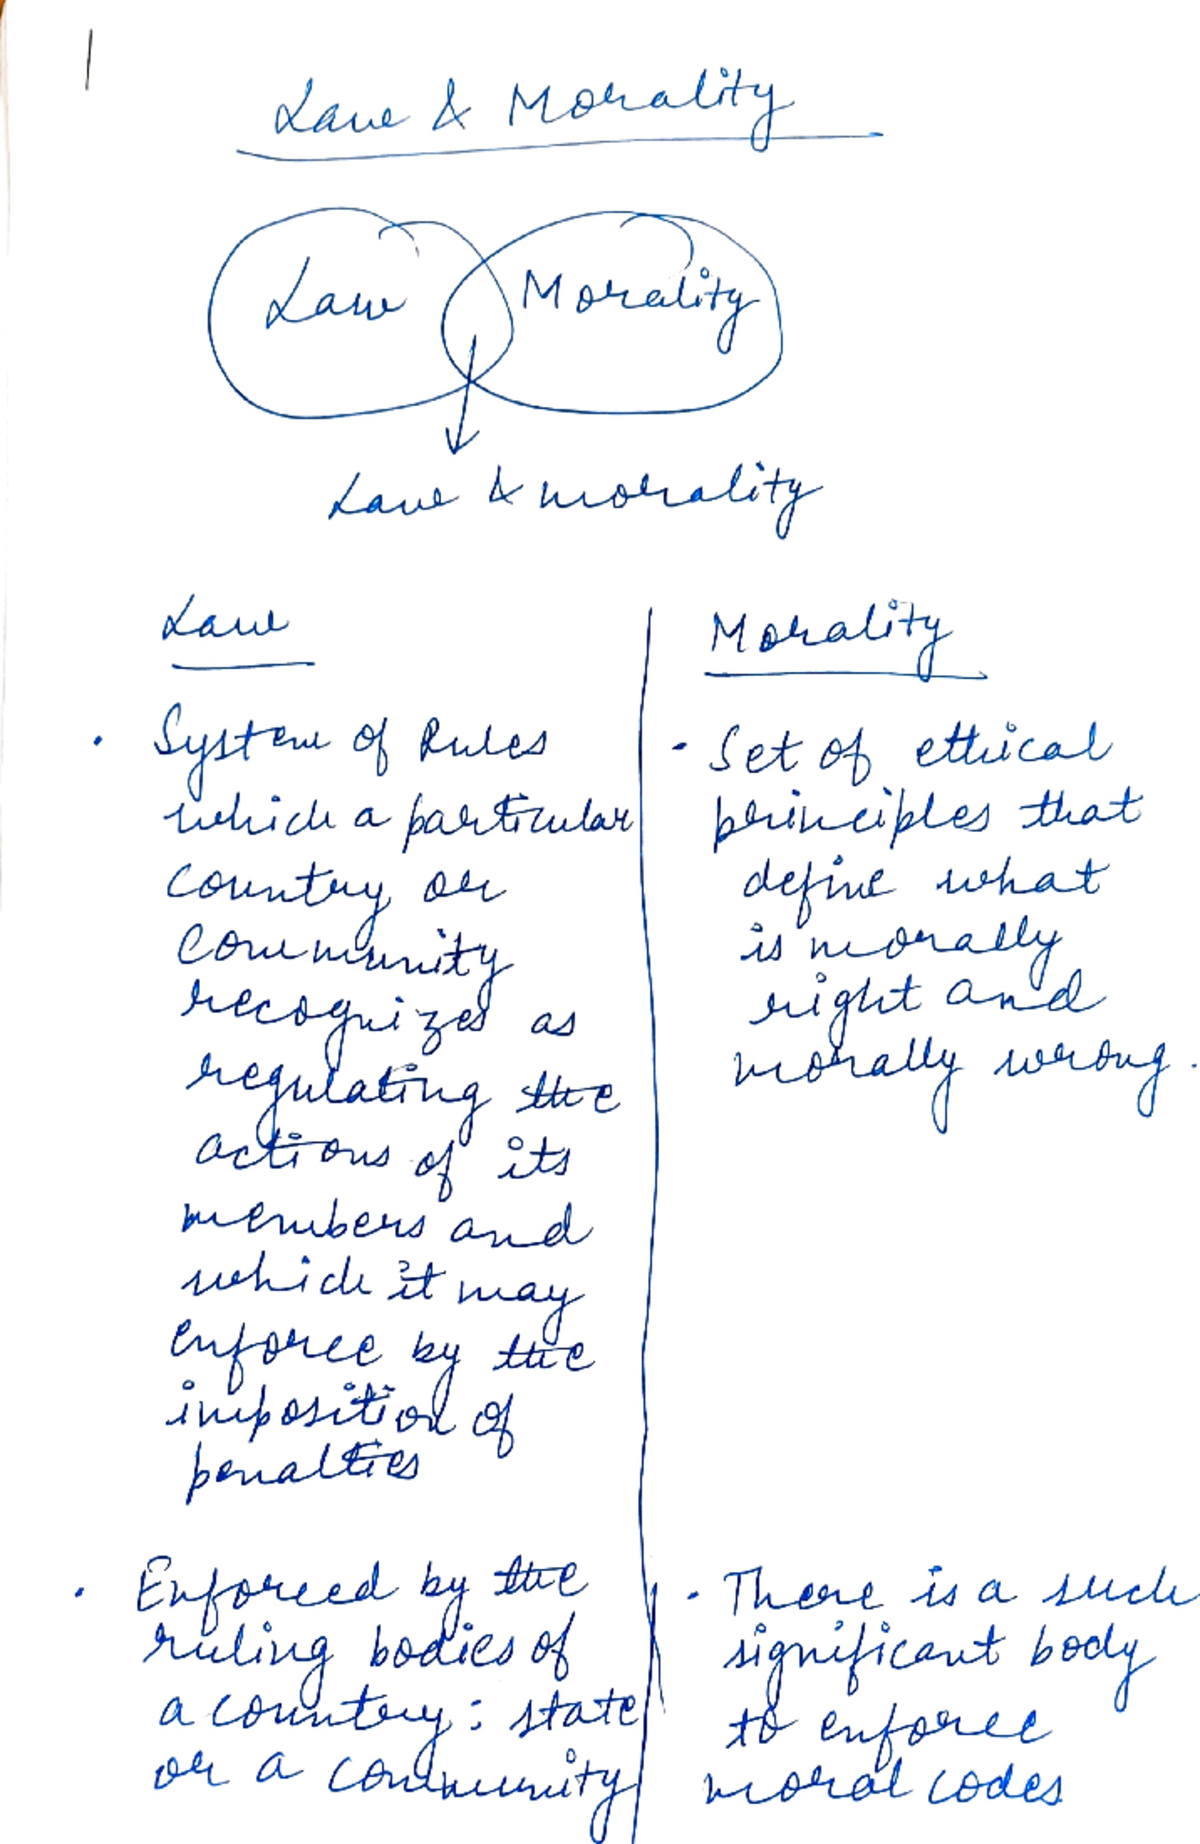 1
Law & Morality
Law
Morality
Law & morality
Law
• System of Rules
which a particular
country or
community
recognizes as
regulating the
actions of its
members and
which it may
enforce by the
imposition of
penalties
• Enforced by the
ruling bodies of
a country: state
or a community
Morality
• Set of ethical
principles that
define what
is morally
right and
morally wrong.
• There is a such
significant body
to enforce
moral codes